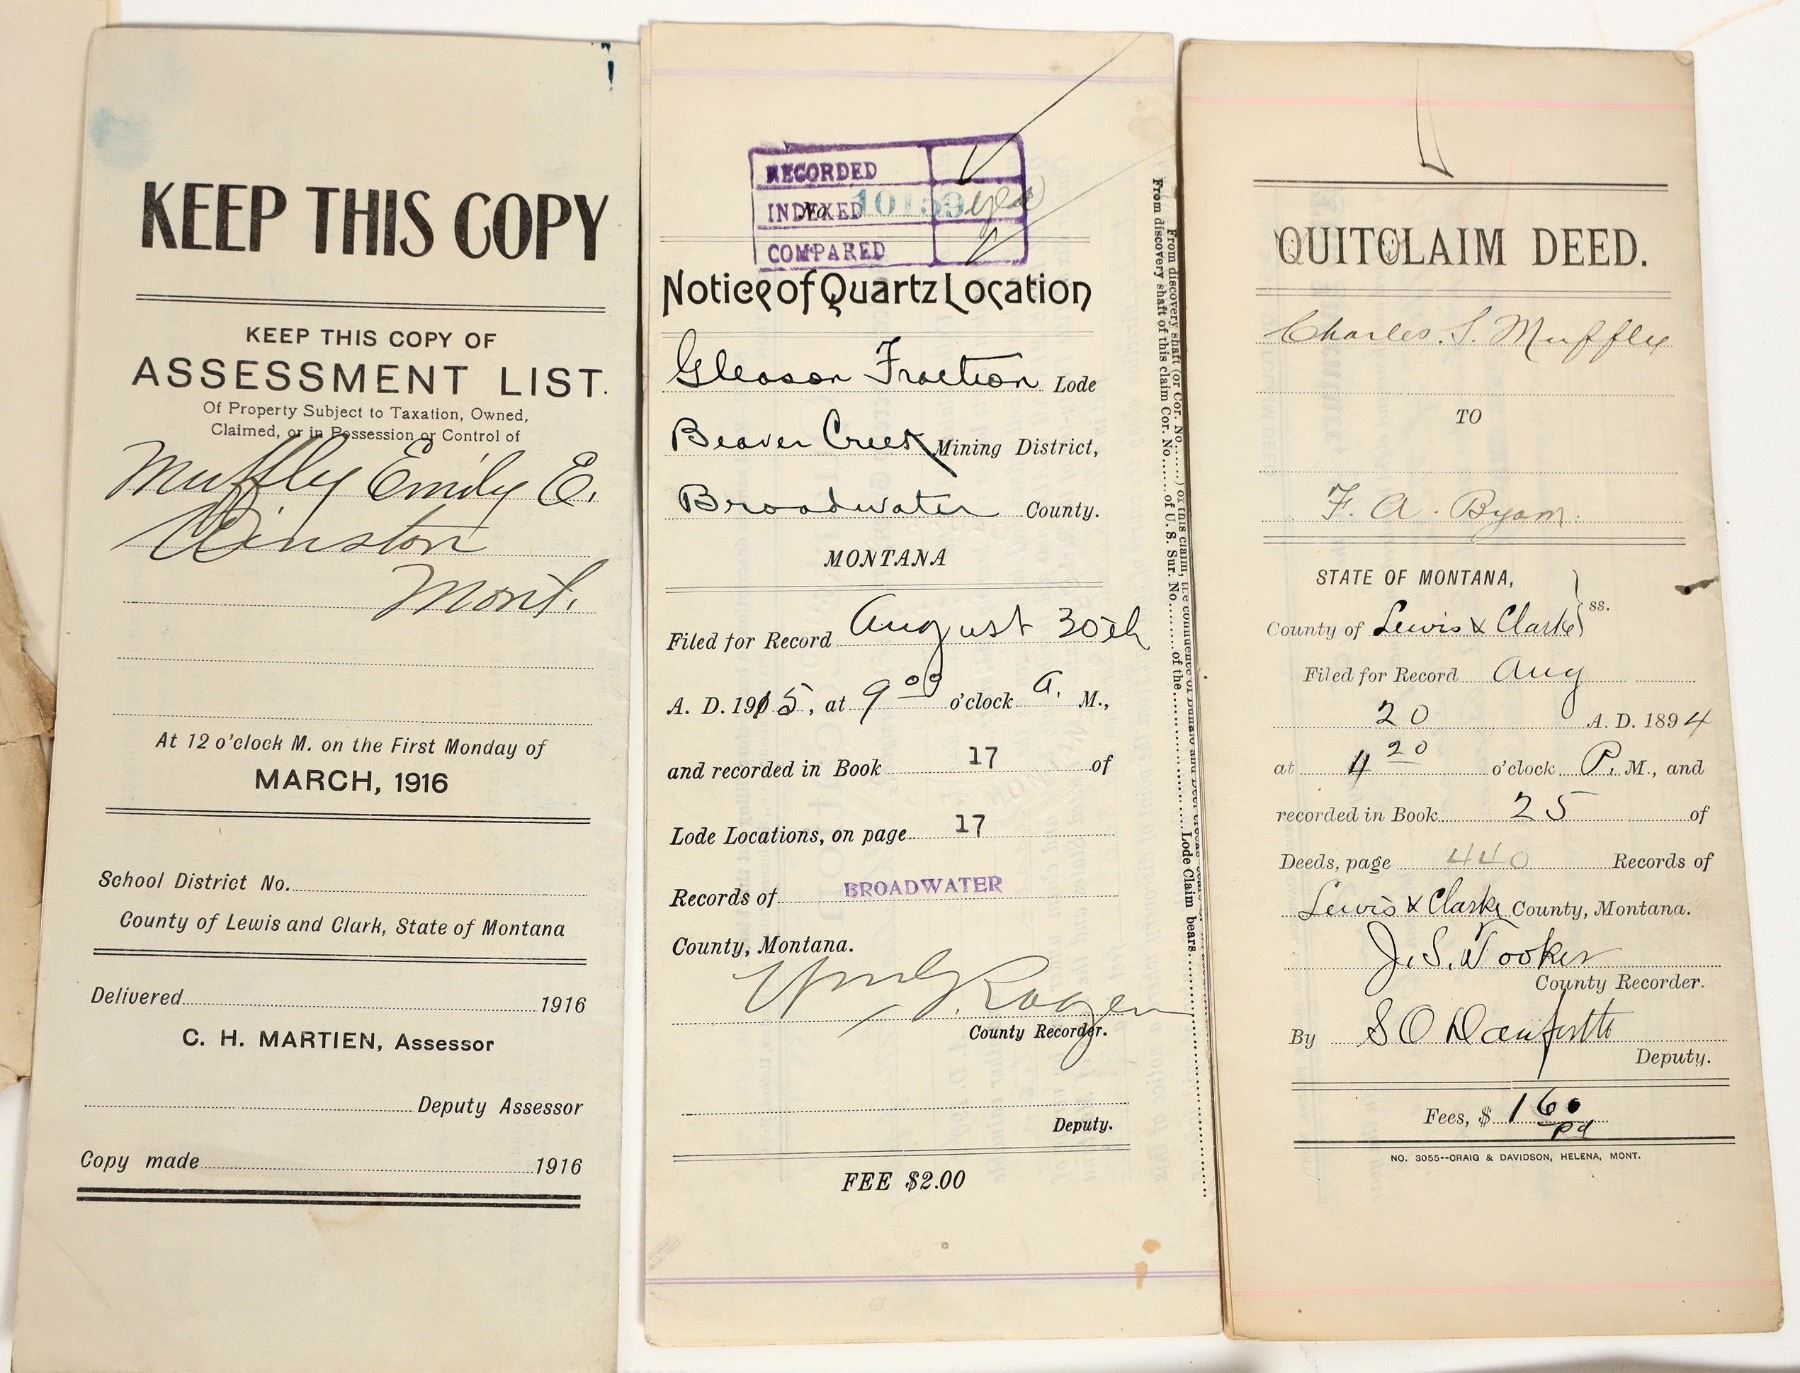 KEEP THIS COPY
KEEP THIS COPY OF
ASSESSMENT LIST.
Of Property Subject to Taxation, Owned,
Claimed, or in Possession or Control of
Muffly Emily E.
Winston
Mont.
At 12 o'clock M. on the First Monday of
MARCH, 1916
School District No.
County of Lewis and Clark, State of Montana
Delivered 1916
C. H. MARTIEN, Assessor
Deputy Assessor
Copy made 1916
RECORDED
INDEXED No 10159
COMPARED
Notice of Quartz Location
Gleason Fraction Lode
Beaver Creek Mining District,
Broadwater County.
MONTANA
Filed for Record August 30th
A. D. 1915, at 9 00 o'clock A. M.,
and recorded in Book 17 of
Lode Locations, on page 17
Records of BROADWATER
County, Montana.
County Recorder.
Deputy.
FEE $2.00
From discovery shaft (or Cor. No. ) of this claim,
From discovery shaft of this claim Cor. No. of U. S. Sur. No. of the Lode Claim bears
QUITCLAIM DEED.
Charles. S. Muffly
TO
F. A. Byam.
STATE OF MONTANA,
County of Lewis & Clarke ss.
Filed for Record Aug
20 A. D. 1894
at 4 20 o'clock P. M., and
recorded in Book 25 of
Deeds, page 440 Records of
Lewis & Clarke County, Montana.
J. S. Tooker
County Recorder.
By S O Danforth
Deputy.
Fees, $ 1 60
pd
NO. 3055--CRAIG & DAVIDSON, HELENA, MONT.